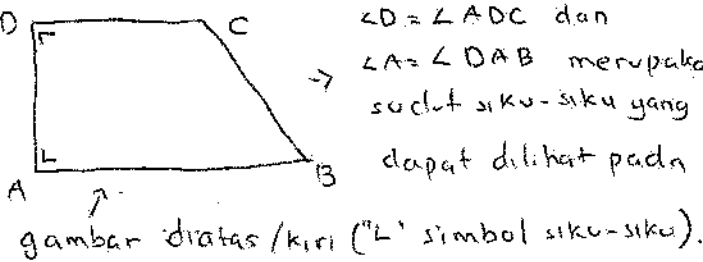 D C
A B
∠D = ∠ADC dan
→ ∠A = ∠DAB merupaka
sudut siku-siku yang
dapat dilihat pada
gambar diatas/kiri ("L" simbol siku-siku).